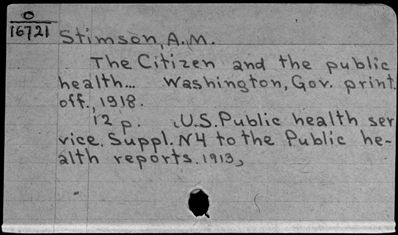 O
16721
Stimson, A. M.
The Citizen and the public
health... Washington, Gov. print.
off., 1918.
12 p. (U.S. Public health ser
vice. Suppl. N4 to the Public he-
alth reports. 1913)